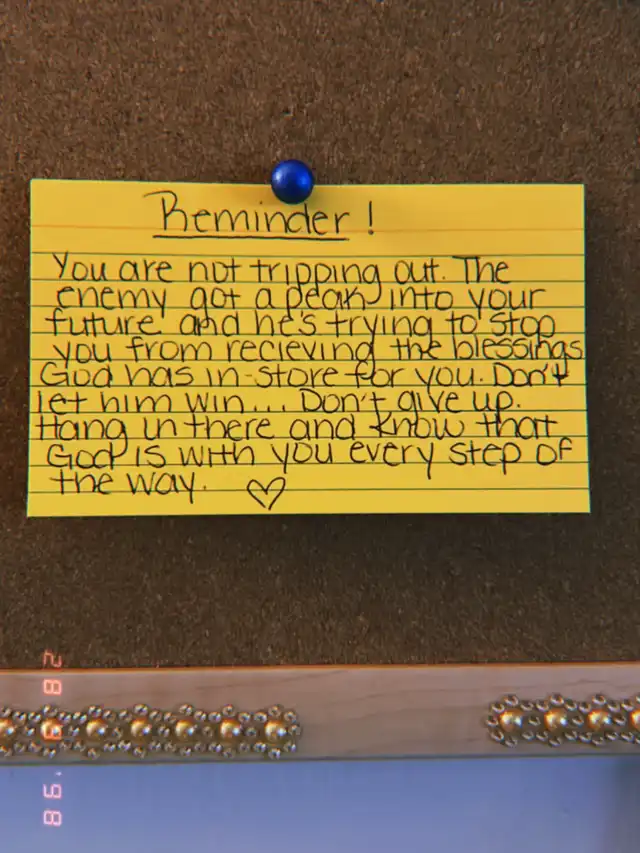 Reminder!
You are not tripping out. The
enemy got a peak into your
future and he's trying to stop
you from recieving the blessings
God has in-store for you. Don't
let him win... Don't give up.
Hang in there and know that
God is with you every step of
the way. ♡